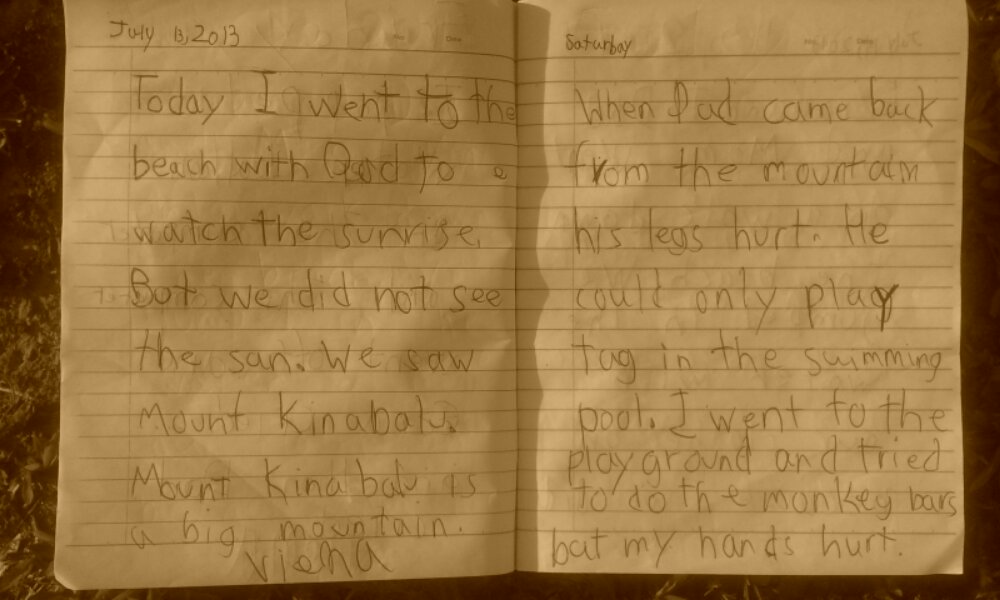 July 13, 2013
Today I went to the
beach with Dad to
watch the sunrise.
But we did not see
the san. We saw
Mount Kinabalu.
Mount Kinabalu is
a big mountain.
Viena
Saturbay
When Dad came back
from the mountain
his legs hurt. He
could only play
tag in the swimming
pool. I went to the
playground and tried
to do the monkey bars
but my hands hurt.